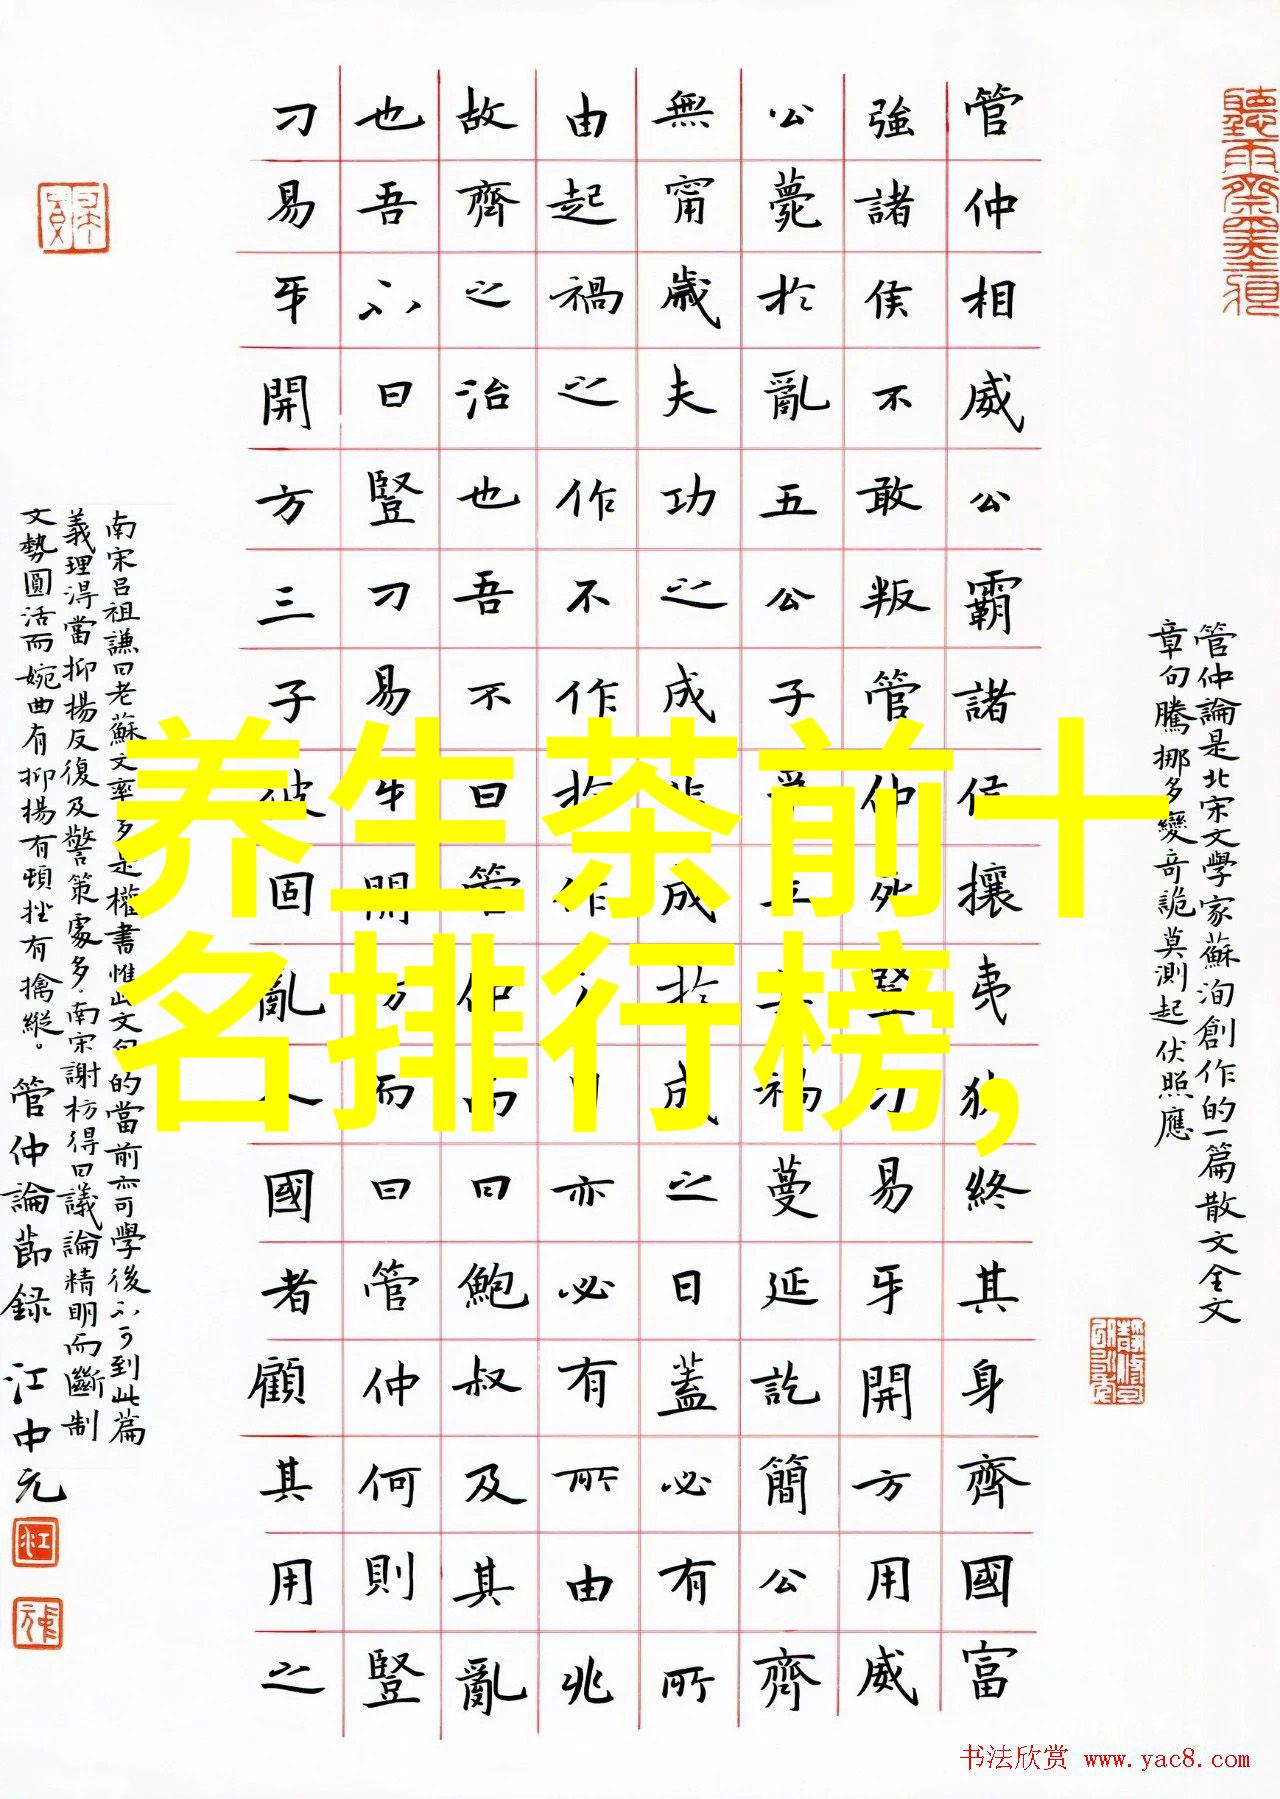 管仲論是北宋文學家蘇洵創作的一篇散文全文
章句騰挪多變奇詭莫測起伏照應
管仲相威公霸諸侯攘夷狄終其身齊國富
強諸侯不敢叛管仲死豎刁易牙開方用威
公薨於亂五公子爭立其禍蔓延訖簡公齊
無甯歲夫功之成非成於成之日蓋必有所
由起禍之作不作於作之日亦必有所由兆
故齊之治也吾不曰管仲而曰鮑叔及其亂
也吾不曰豎刁易牙開方而曰管仲何則豎
刁易牙開方三子彼固亂人國者顧其用之
南宋吕祖謙曰老蘇文率多是權書惟此文句的當前亦可學後不可到此篇
義理淂當抑揚反復及警策處多.南宋謝枋得曰議論精明而斷制
文勢圓活而婉曲有抑揚有頓挫有擒縱。管仲論節録 江中元
养生茶前十
名排行榜,
书法欣赏 www.yac8.com